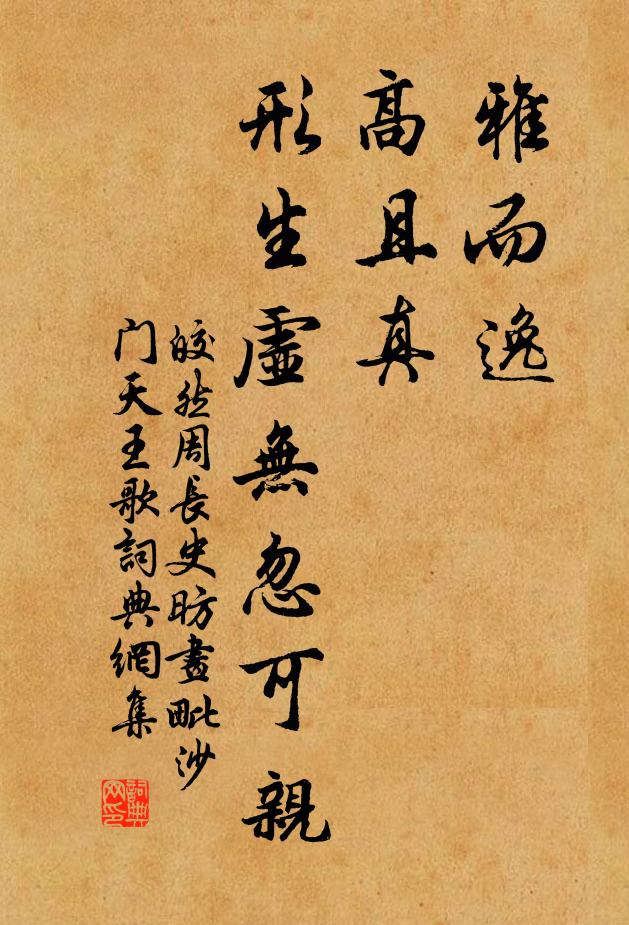 雅而逸
高且真
形生虛無忽可親
皎然周長史昉畫毗沙
门天王歌詞典網集
詞典
网印